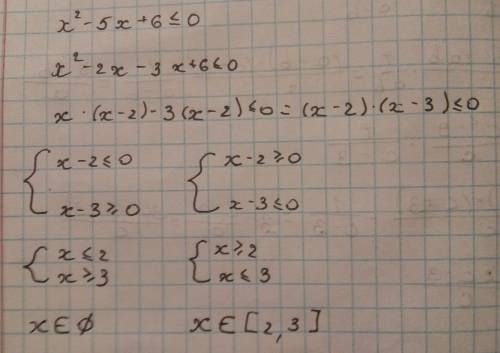 x² - 5x + 6 ≤ 0
x² - 2x - 3x + 6 ≤ 0
x · (x - 2) - 3(x - 2) ≤ 0 = (x - 2) · (x - 3) ≤ 0
{ x - 2 ≤ 0 { x - 2 ≥ 0
x - 3 ≥ 0 x - 3 ≤ 0
{ x ≤ 2 { x ≥ 2
x ≥ 3 x ≤ 3
x ∈ ∅ x ∈ [2, 3]